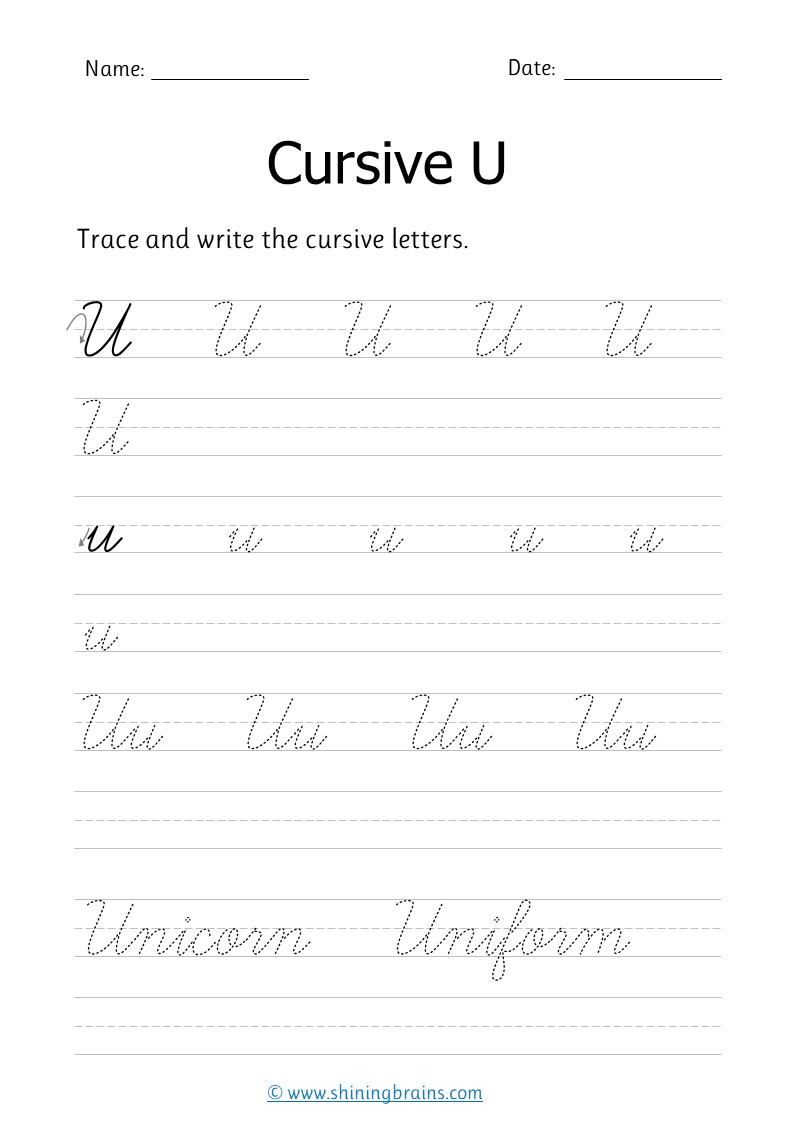 Name: Date:
Cursive U
Trace and write the cursive letters.
U U U U U
U
u u u u u
u
Uu Uu Uu Uu
Unicorn Uniform
© www.shiningbrains.com